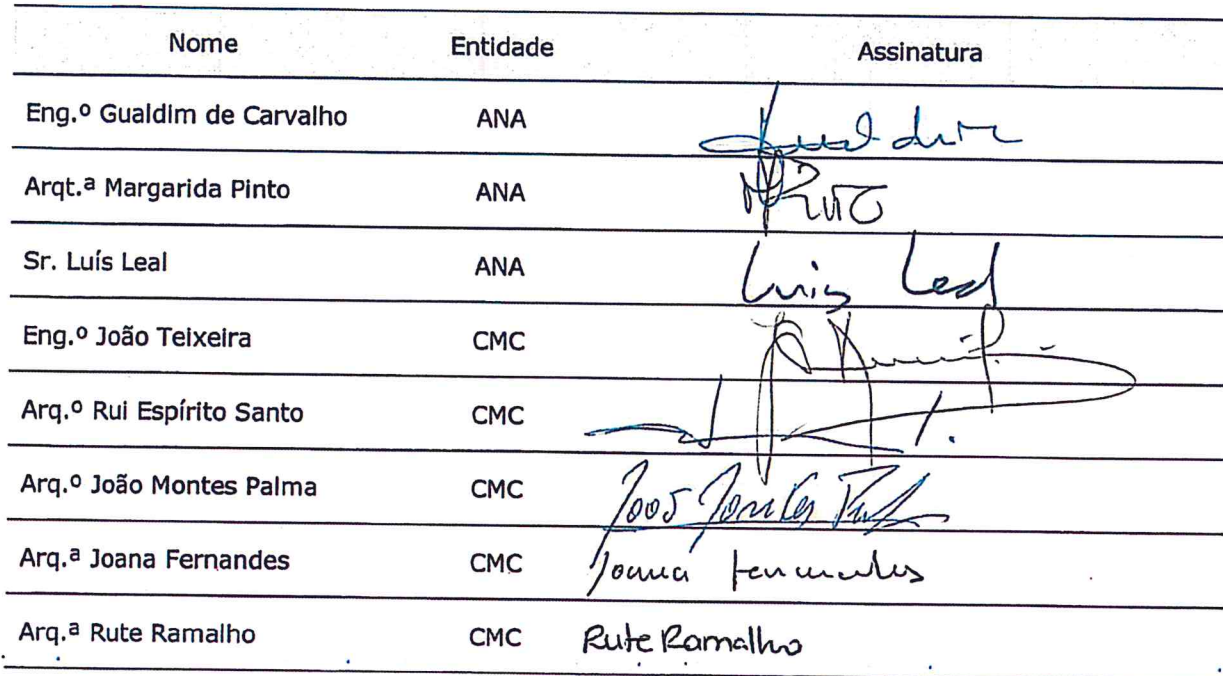 Nome Entidade Assinatura
Eng.º Gualdim de Carvalho ANA Gualdim
Arqt.ª Margarida Pinto ANA MPinto
Sr. Luís Leal ANA Luis Leal
Eng.º João Teixeira CMC
Arq.º Rui Espírito Santo CMC
Arq.º João Montes Palma CMC João Montes Palma
Arq.ª Joana Fernandes CMC Joana Fernandes
Arq.ª Rute Ramalho CMC Rute Ramalho